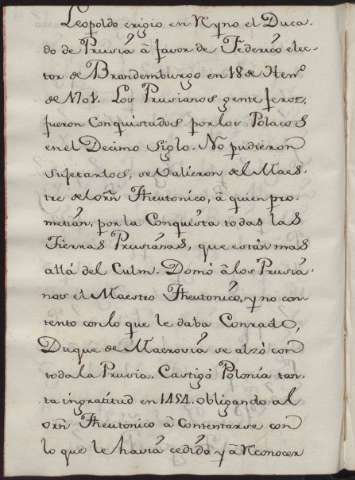 Leopoldo erigio en Ryno el Duca-
do de Prusia â favor de Federico elec-
tor de Brandemburgo en 18 de Hen.º
de 1701. Los Prusianos gente feroz,
fueron Conquistados por los Polacos
en el Decimo Siglo. No pudieron
sujetarlos, se valieron del Maes-
tre del orñ Theutonico, â quien pro-
metian, por la Conquista todas las
Tierras Prusianas, que estan mas
allá del Culm. Domó âlos Prusia-
nos el Maestro Theutonico, y no con-
tento con lo que le daba Conrado,
Duque de Macrovia se alzó con
toda la Prusia. Castigó Polonia tan-
ta ingratitud en 1454. obligando al
orñ Theutonico â Contentarse con
lo que le havia cedido y â Reconocer